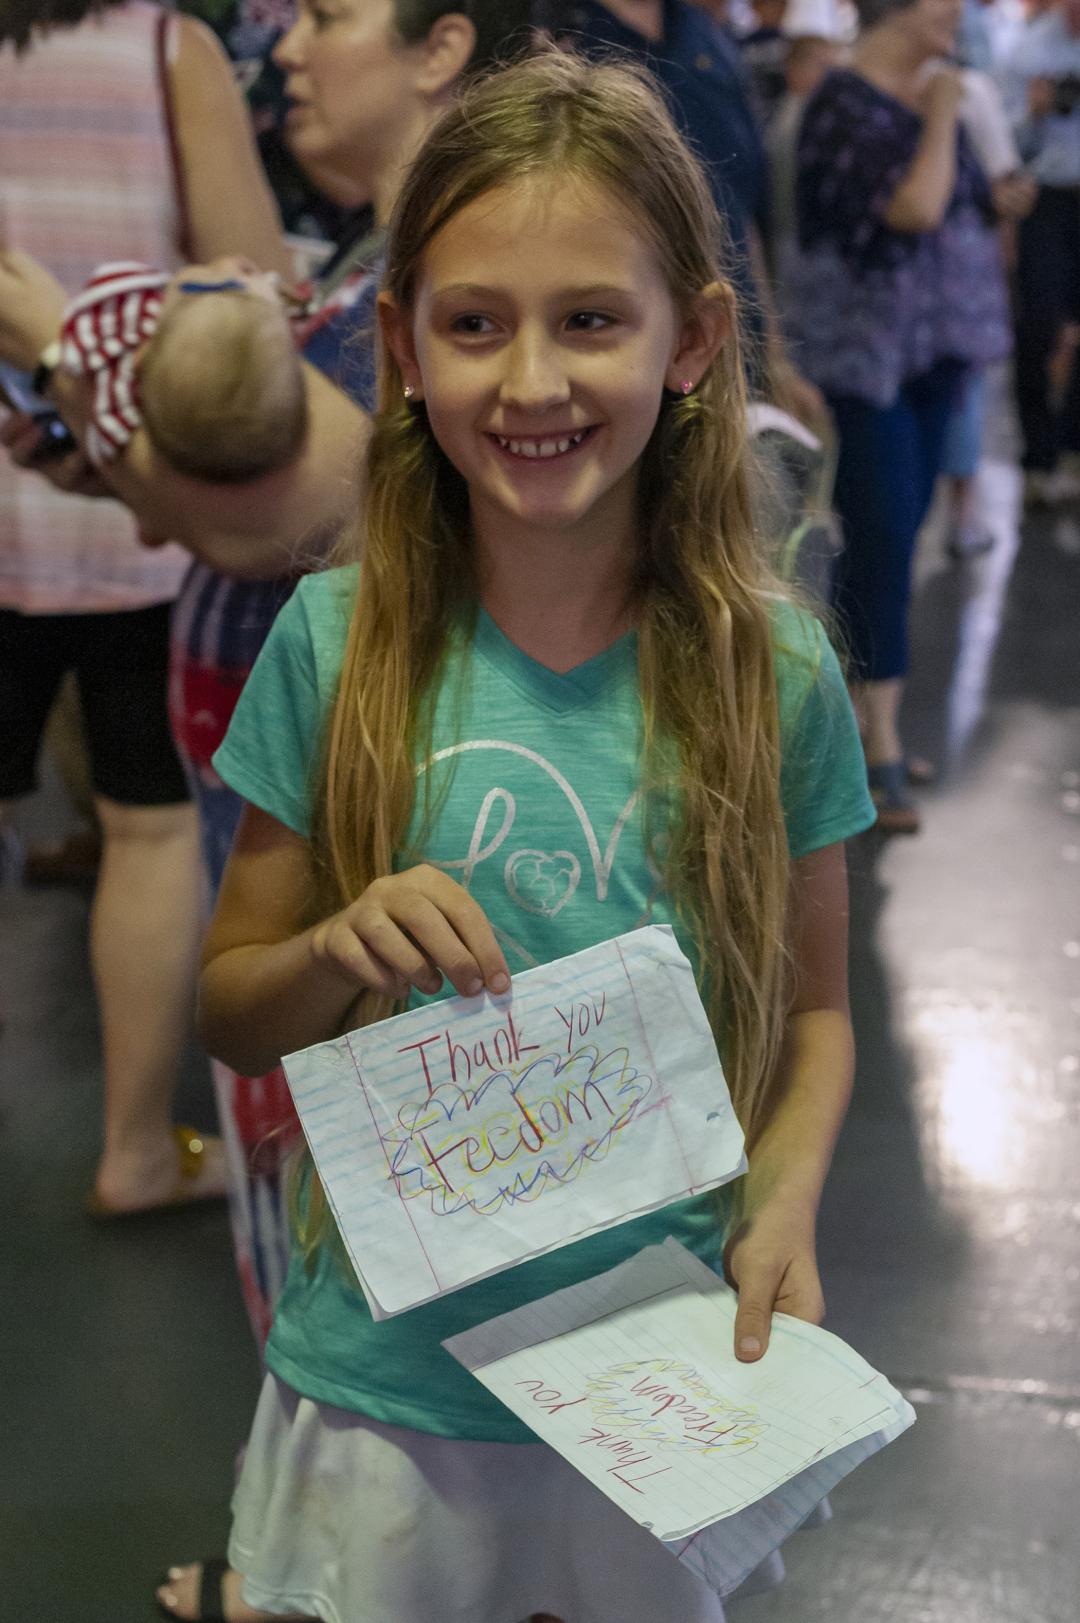 Love
Thank you
Feedom
Thank you
Freedom